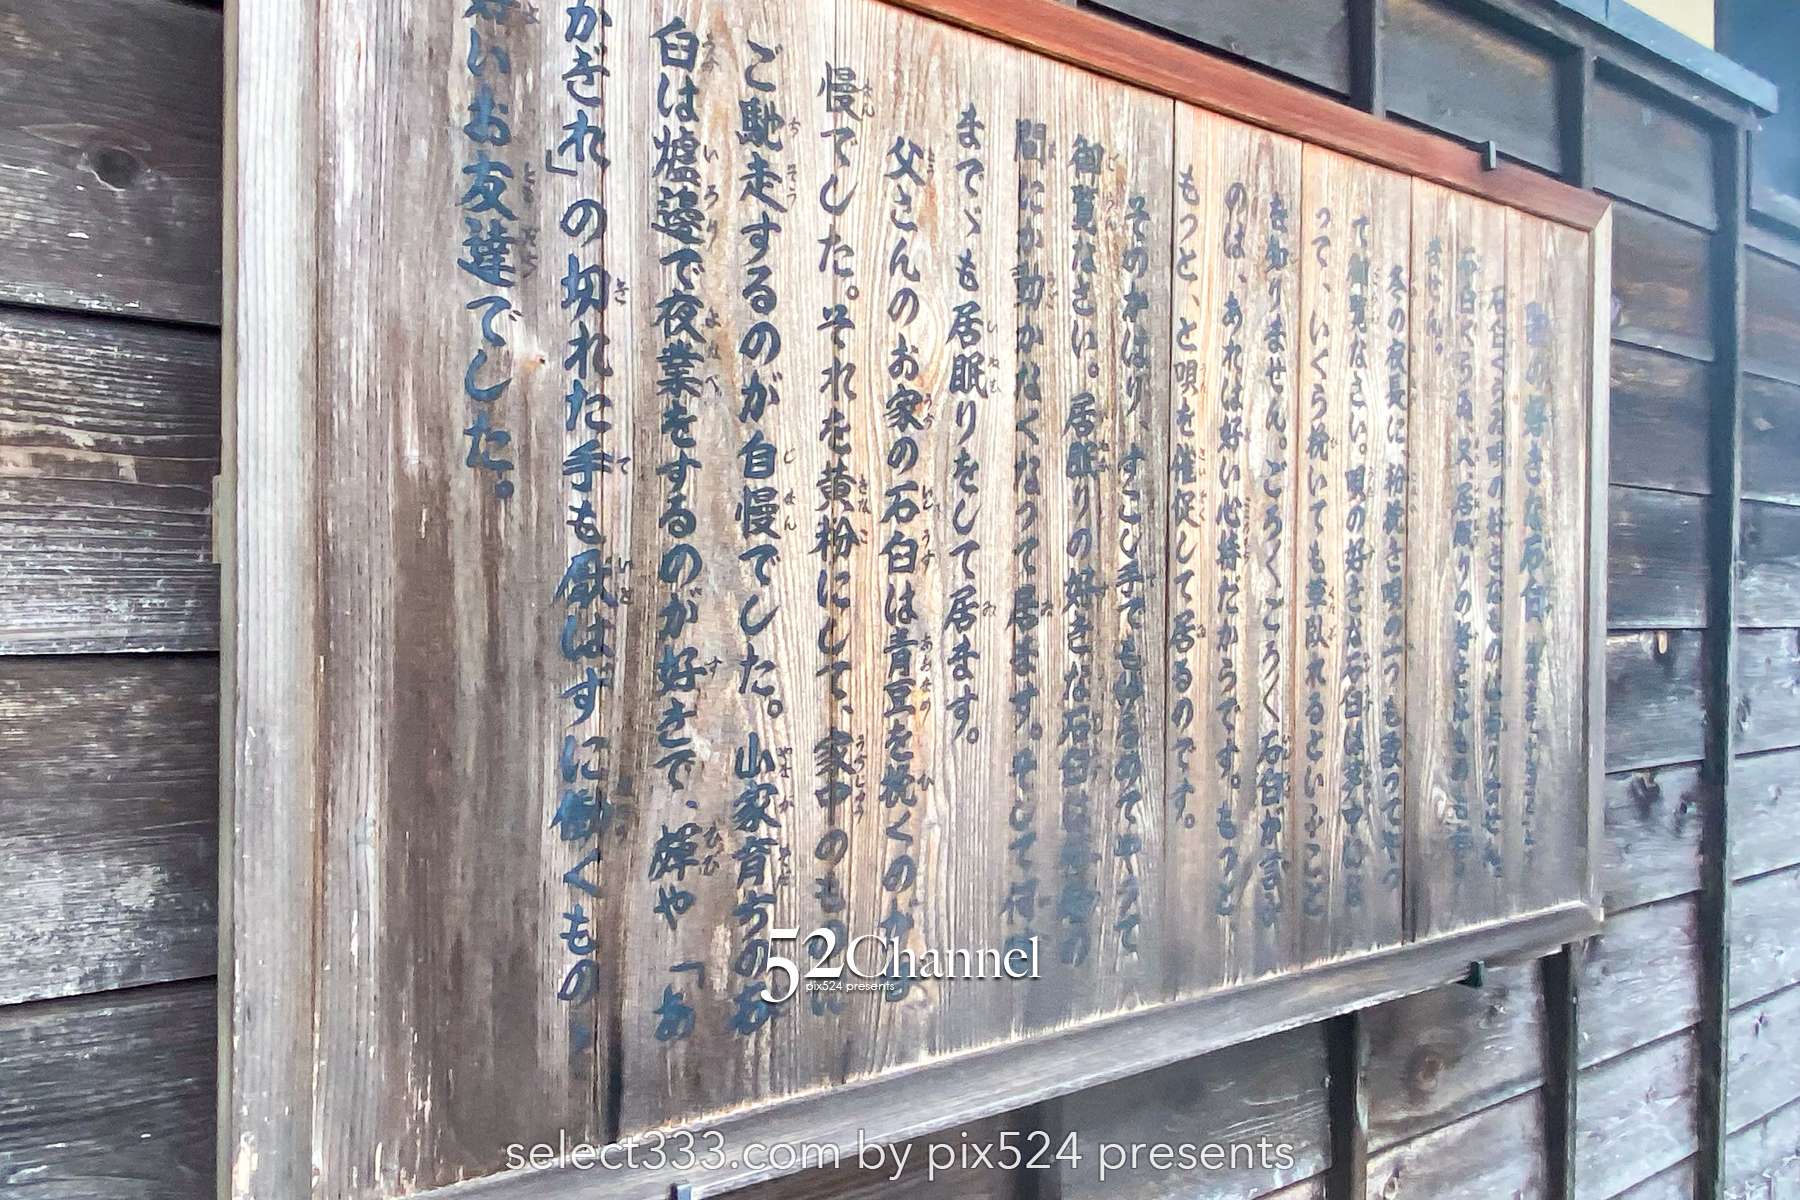 唄の好きな石臼
石臼ぐらゐ唄の好きなものは有りません。
石臼ぐらゐ、又、居眠りの好きな
ません。
冬の夜長に粉挽き唄の一つも歌つてやつ
て御覧なさい。唄の好きな石臼は夢中にな
つて、いくら挽いても草臥れるといふこと
を知りません。ごろ〱ごろ〱石臼が言ふ
のは、あれは好い心持だからです。もつと
もつと、と唄を催促して居るのです。
そのかはり、すこし手でもゆるめてやつて
御覧なさい。居眠りの好きな石臼は
間にか動かなくなつて居ます。そして何時
までゞも居眠りをして居ます。
父さんのお家の石臼は青豆を挽くのが
慢でした。それを黄粉にして、家中のものに
ご馳走するのが自慢でした。山家育ちの石
臼は爐邊で夜業をするのが好きで、皹や「あ
かぎれ」の切れた手も厭はずに働くもの、
いお友達でした。
52Channel
pix524 presents
select333.com by pix524 presents